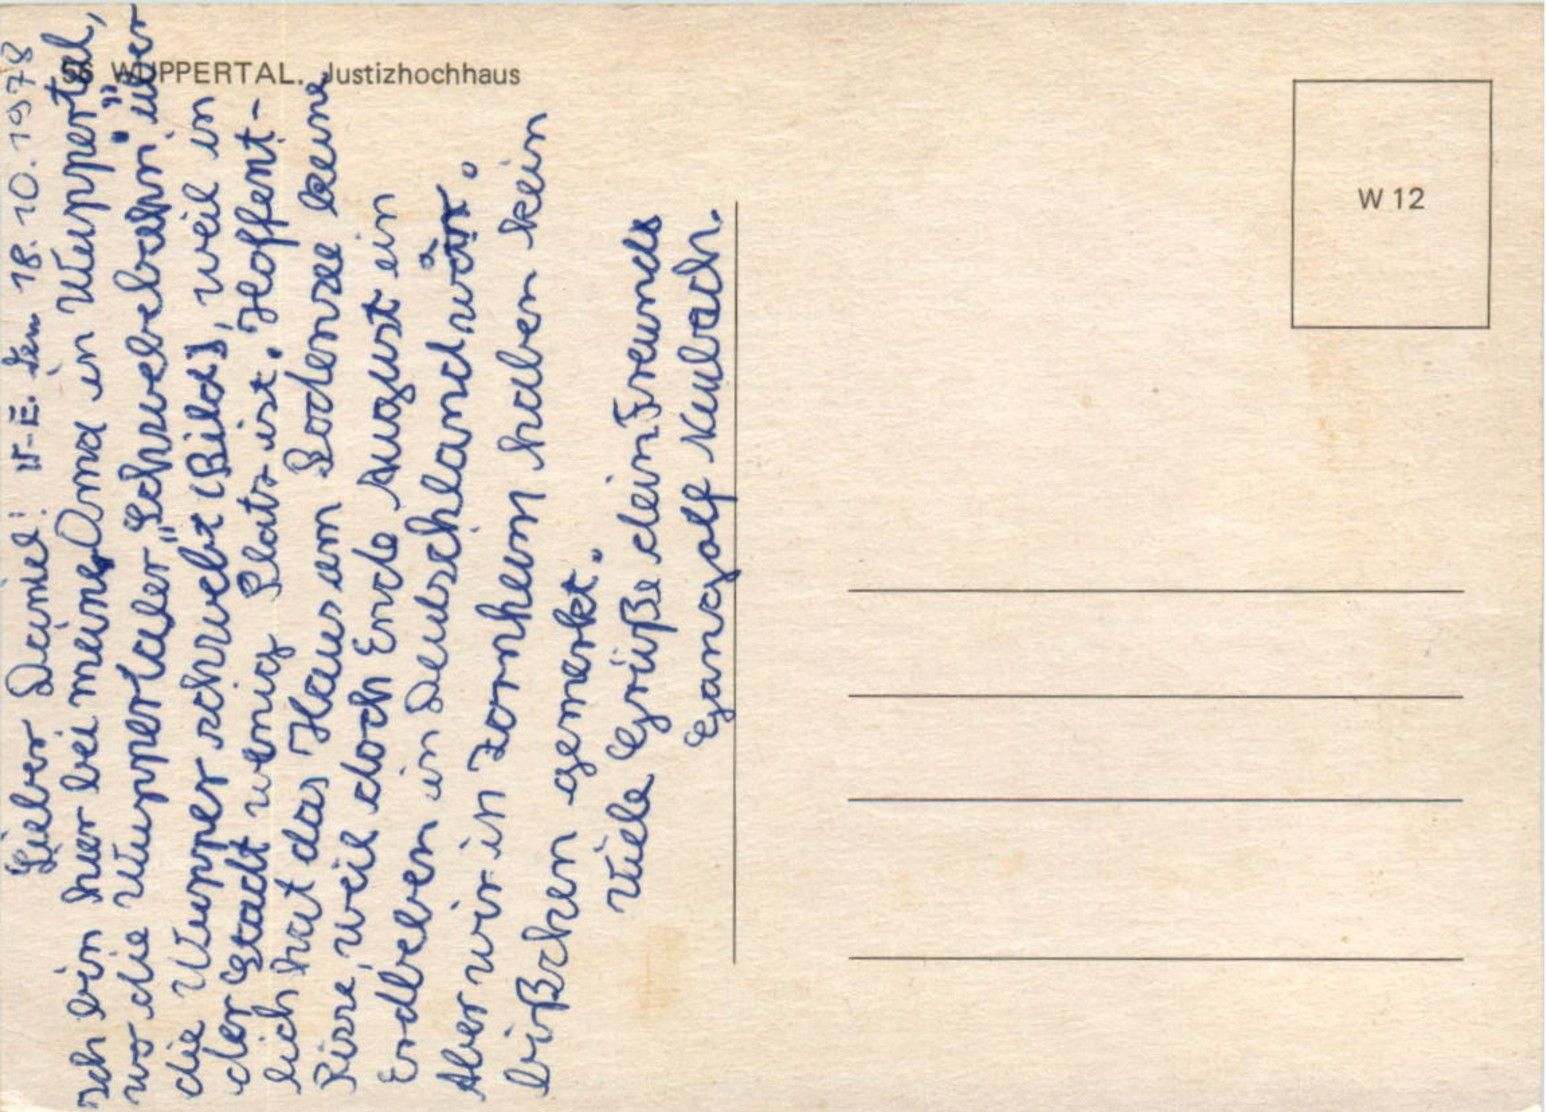 56 WUPPERTAL. Justizhochhaus
W 12
W-E. den 18.10.1978
Lieber Daniel!
Ich bin hier bei meiner Oma in Wuppertal,
wo die Wuppertaler „Schwebebahn" über
die Wupper schwebt (Bild), weil in
der Stadt wenig Platz ist. Hoffent-
lich hat das Haus am Bodensee keine
Risse, weil doch Ende August ein
Erdbeben in Deutschland war.
Aber wir in Zornheim haben kein
bißchen gemerkt.
Viele Grüße dein Freund
Gangolf